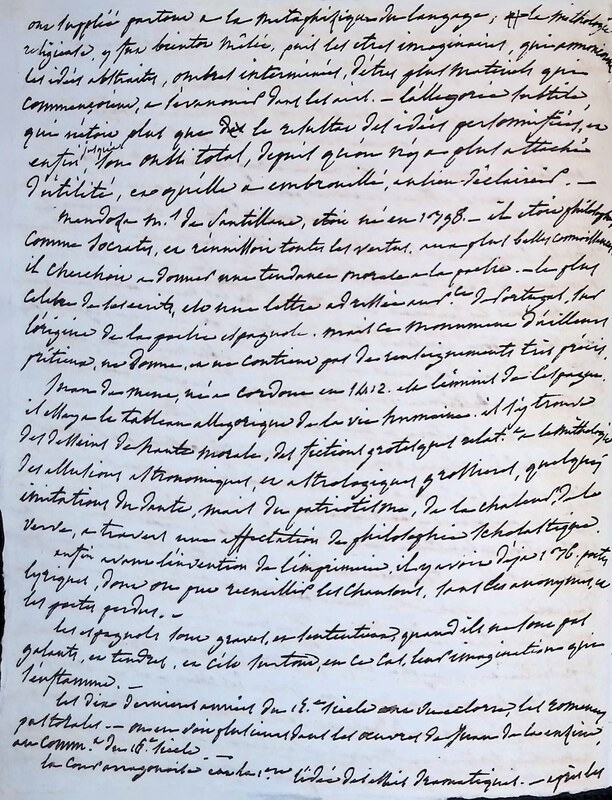 ont suppléé partout a la metaphisique du langage; la mithologie
religieuse, y fut bientot mêlée, puis les etres imaginaires, qui
les idées abstraites, ombres interminées, d'êtres plus materiels qui
commençoient, a s'evanouir dans les airs. — l'allegorie subtile
que n'étoit plus que le resultat des idées personnifiées, et
enfin, jusqu'à son oubli total, depuis qu'on n'y a plus attaché
d'utilité, et qu'elle a embrouillé, au lieu d'éclaircir. —
Mendoza m.is de Santillane, etoit né en 1398. — il etoit philosophe
comme Socrate, et reunissoit toutes les vertus, aux plus belles connoissances
il cherchoit a donner une tendance morale a la poesie. — le plus
celebre de ses ecrits, est une lettre adressée au p.ce de Portugal, sur
l'origine de la poesie espagnole. mais ce monument d'ailleurs
prétieux, ne donne, et ne contient pas de renseignements très précis
Juan de mena, né a cordoue en 1412. est l'ennius de l'espagne
il essaya le tableau allegorique de la vie humaine. il s'y trouve
des desseins de haute morale, des fictions grotesques relat. a la mithologie
des allusions astronomiques, et astrologiques grossieres, quelques
imitations du dante, mais du patriotisme, de la chaleur, de la
verve, a travers une affectation de philosophie scholastique
enfin avant l'invention de l'imprimerie, il y avoit deja 136, poetes
lyriques, dont on put recueillir les chansons, sans les anonymes, et
les poetes perdus. —
les espagnols sont graves, et sententieux, quand ils ne sont pas
galants, et tendres, et c'est surtout, en ce cas, leur imagination qui
s'enflamme. —
les dix dernieres années du 15.e siecle ont vu eclore, les romences
pastorales — on en voit plusieurs dans les oeuvres de Juan de la enzina,
au comm.t du 16.e siecle
la cour arragonoise eut la 1.ere l'idée des essais dramatiques. — après les